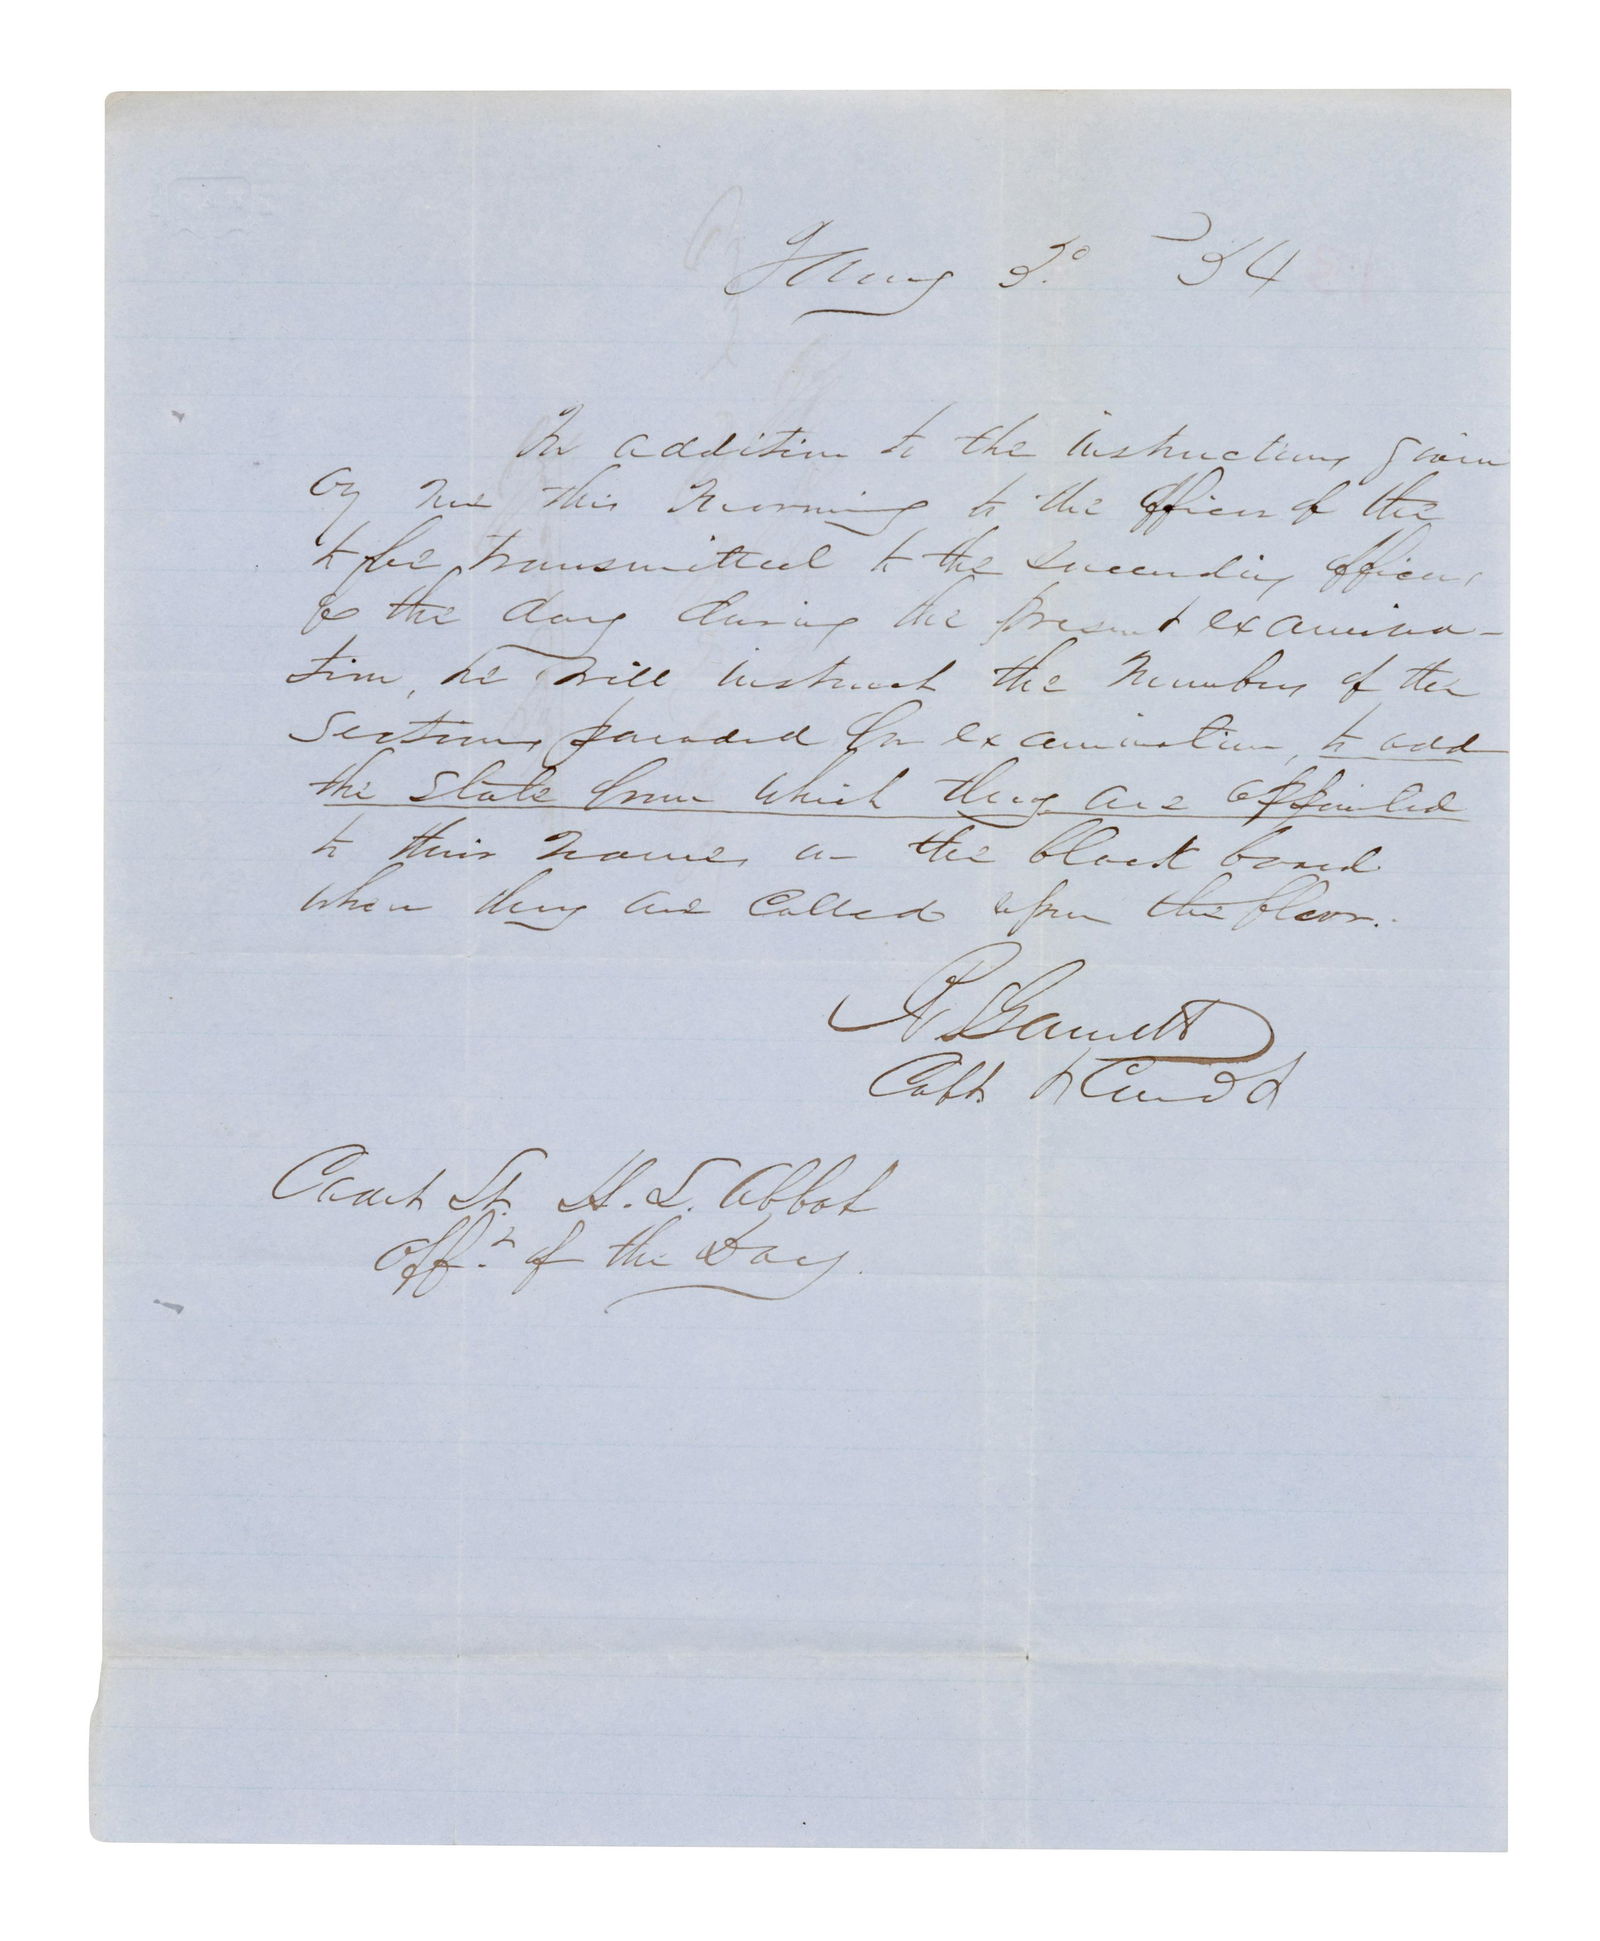 Jany 3d 54
In addition to the instructions given
by me this morning to the officer of the
to be transmitted to the succeeding officers
of the day during the present examina-
tion, he will instruct the members of the
sections paraded for examination, to add
the State from which they are appointed
to their names on the black board
when they are called upon the floor.
R S Garnett
Capt & Comdt
Cadet Lt. H. L. Abbot
Offr. of the Day.